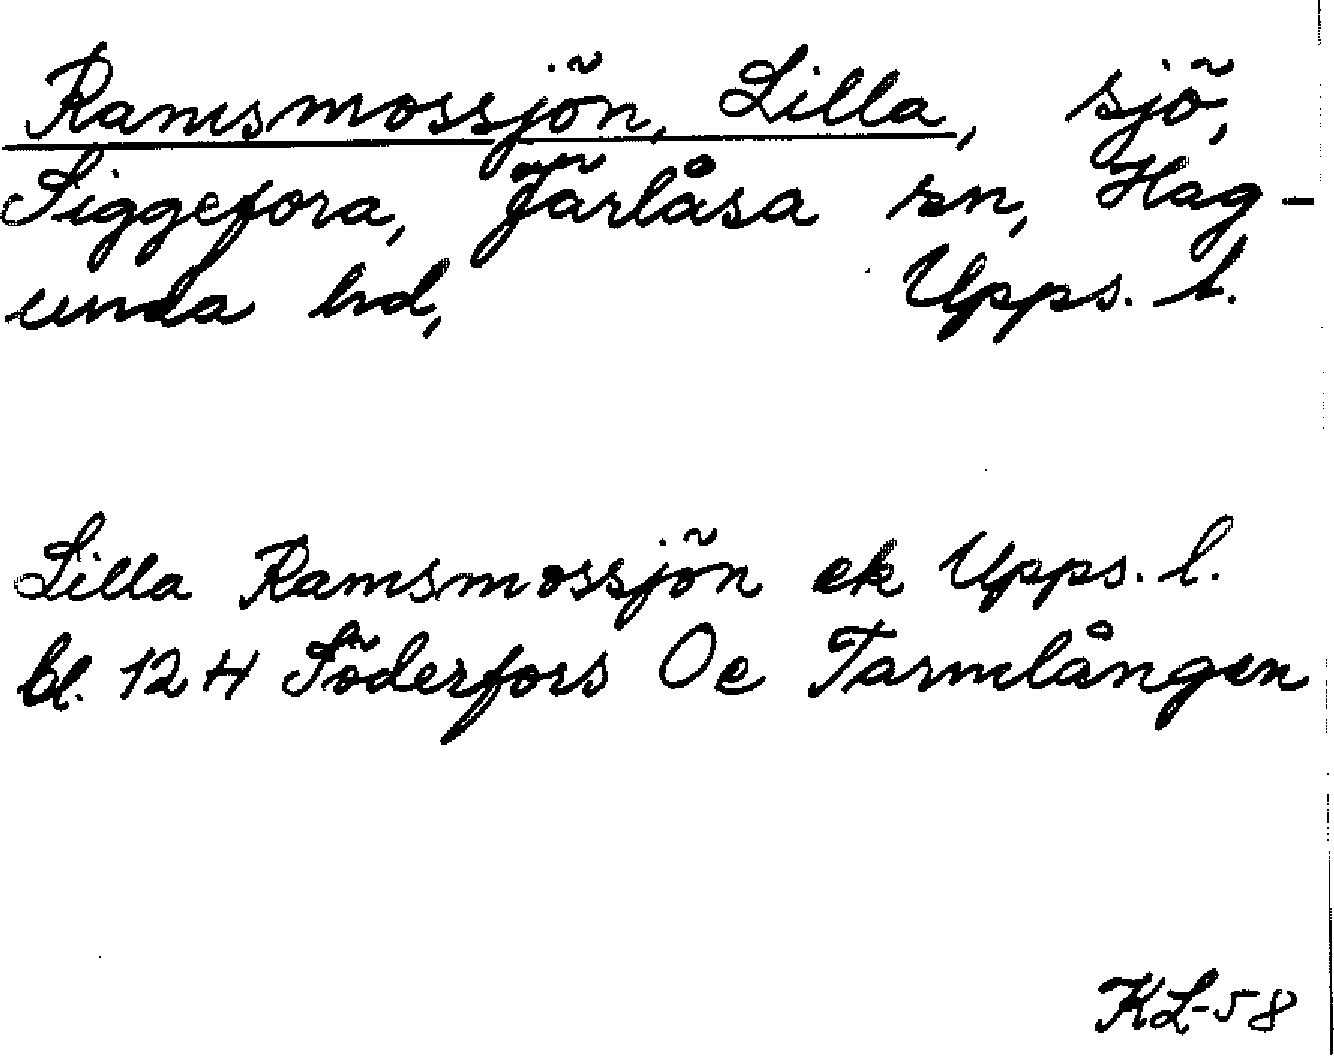 Ramsmossjön, Lilla, sjö,
Siggefora, Järlåsa sn, Hag-
unda hd, Upps. l.
Lilla Ramsmossjön ek Upps. l.
bl. 12 H Söderfors Oe Tarmlången
KL-58